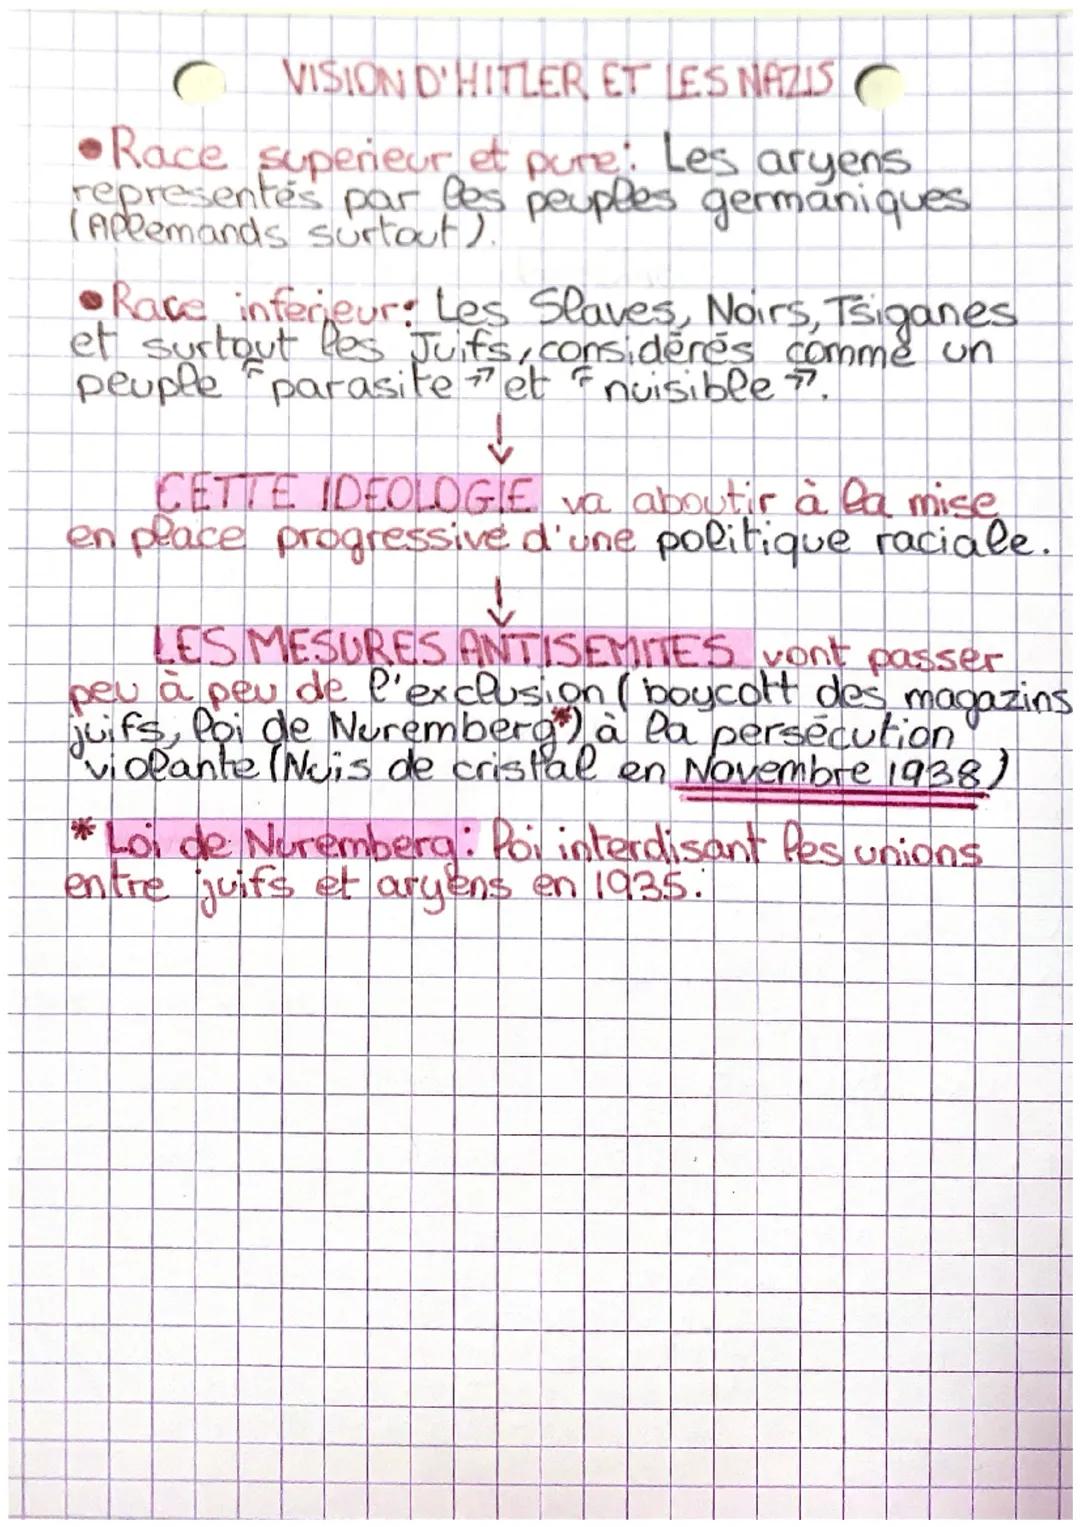 VISION D'HITLER ET LES NAZIS
• Race superieur et pure: Les aryens
representés par les peuples germaniques
(Allemands surtout).
• Race inferieur: Les Slaves, Noirs, Tsiganes
et surtout les Juifs, considérés comme un
peuple "parasite" et "nuisible".
↓
CETTE IDEOLOGIE va aboutir à la mise
en place progressive d'une politique raciale.
↓
LES MESURES ANTISEMITES vont passer
peu à peu de l'exclusion (boycott des magazins
juifs, loi de Nuremberg*) à la persécution
violante (Nuis de cristal en Novembre 1938)
* Loi de Nuremberg: loi interdisant les unions
entre juifs et aryens en 1935.